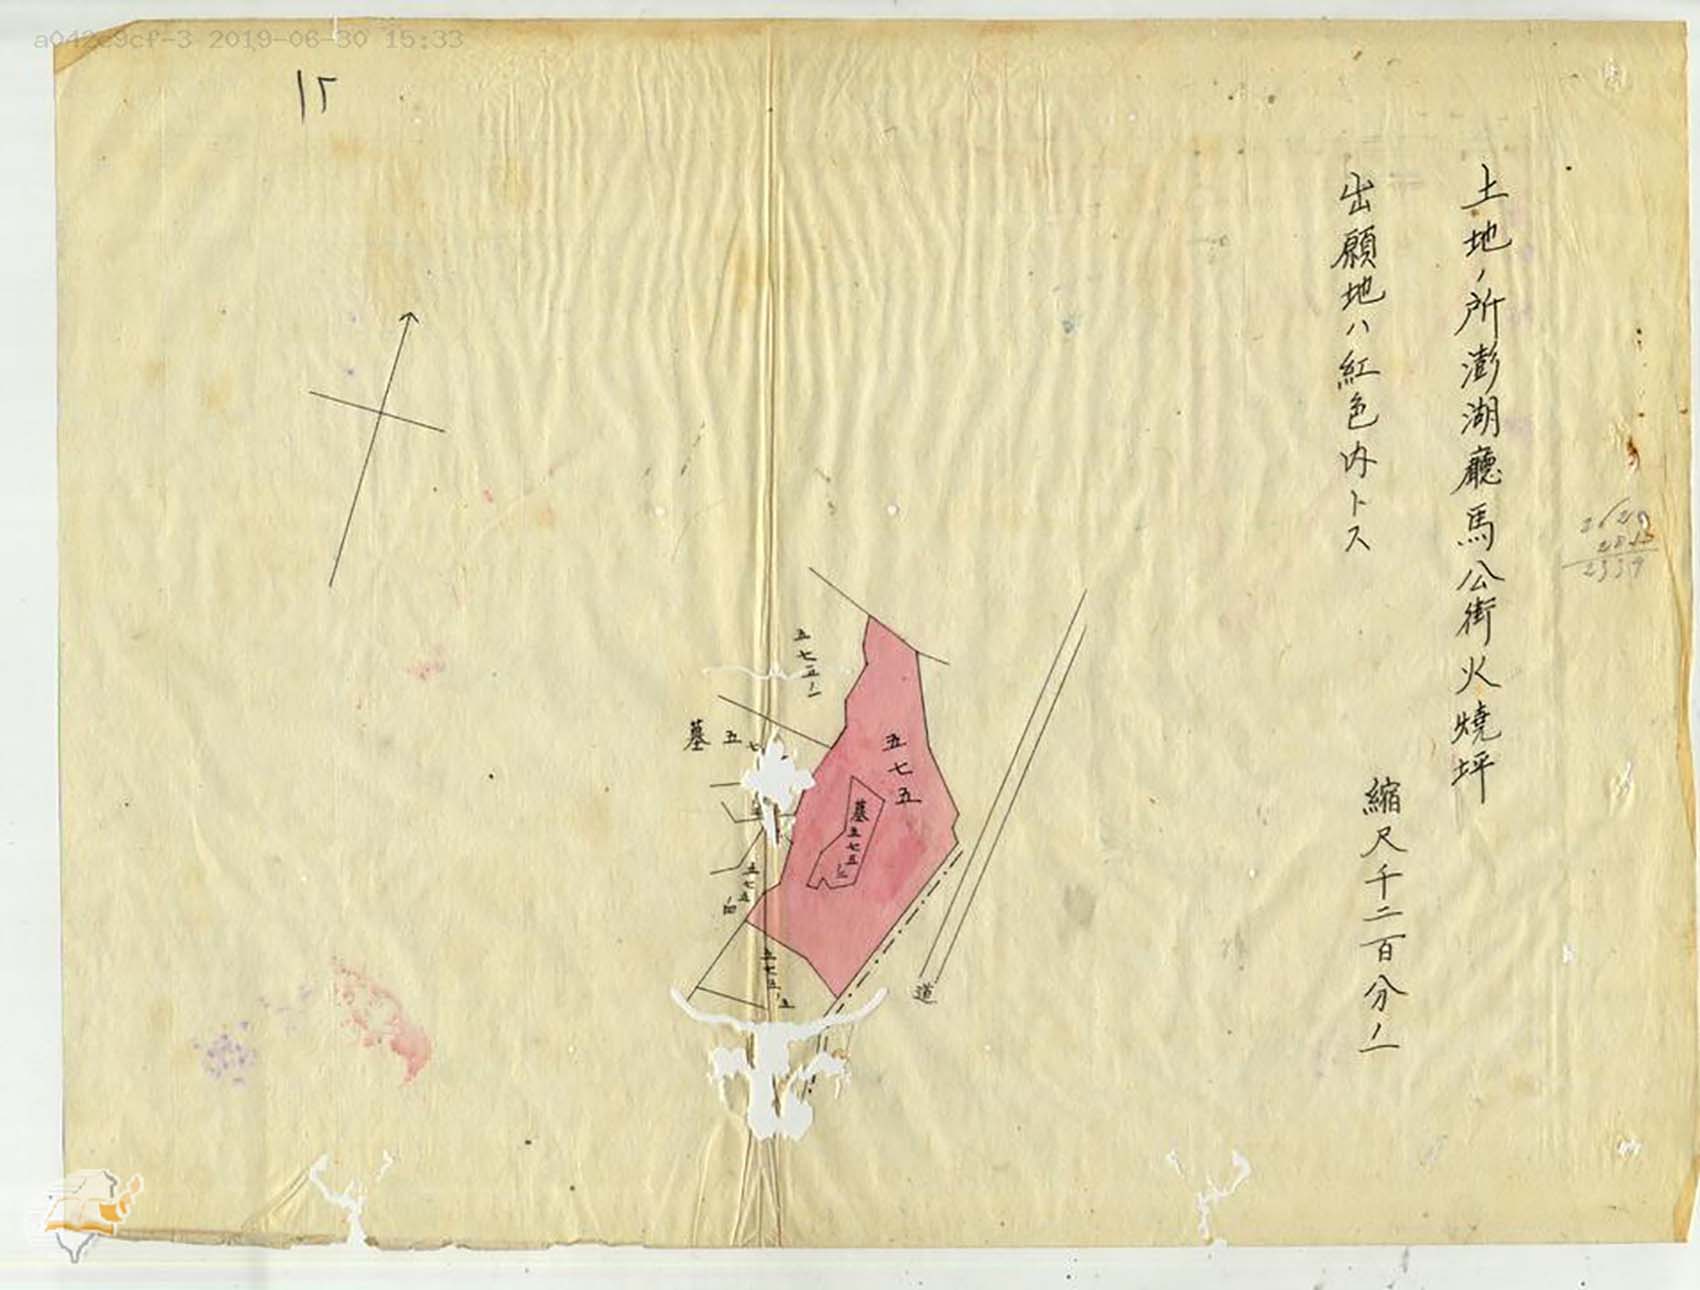 a042c9cf-3 2019-06-30 15:33
土地ノ所澎湖廳馬公街火燒坪
出願地ハ紅色内トス
縮尺千二百分ノ一
五七五ノ一
墓 五七
五七五
墓五七五ノ二
五七五ノ四
五七五ノ五
道